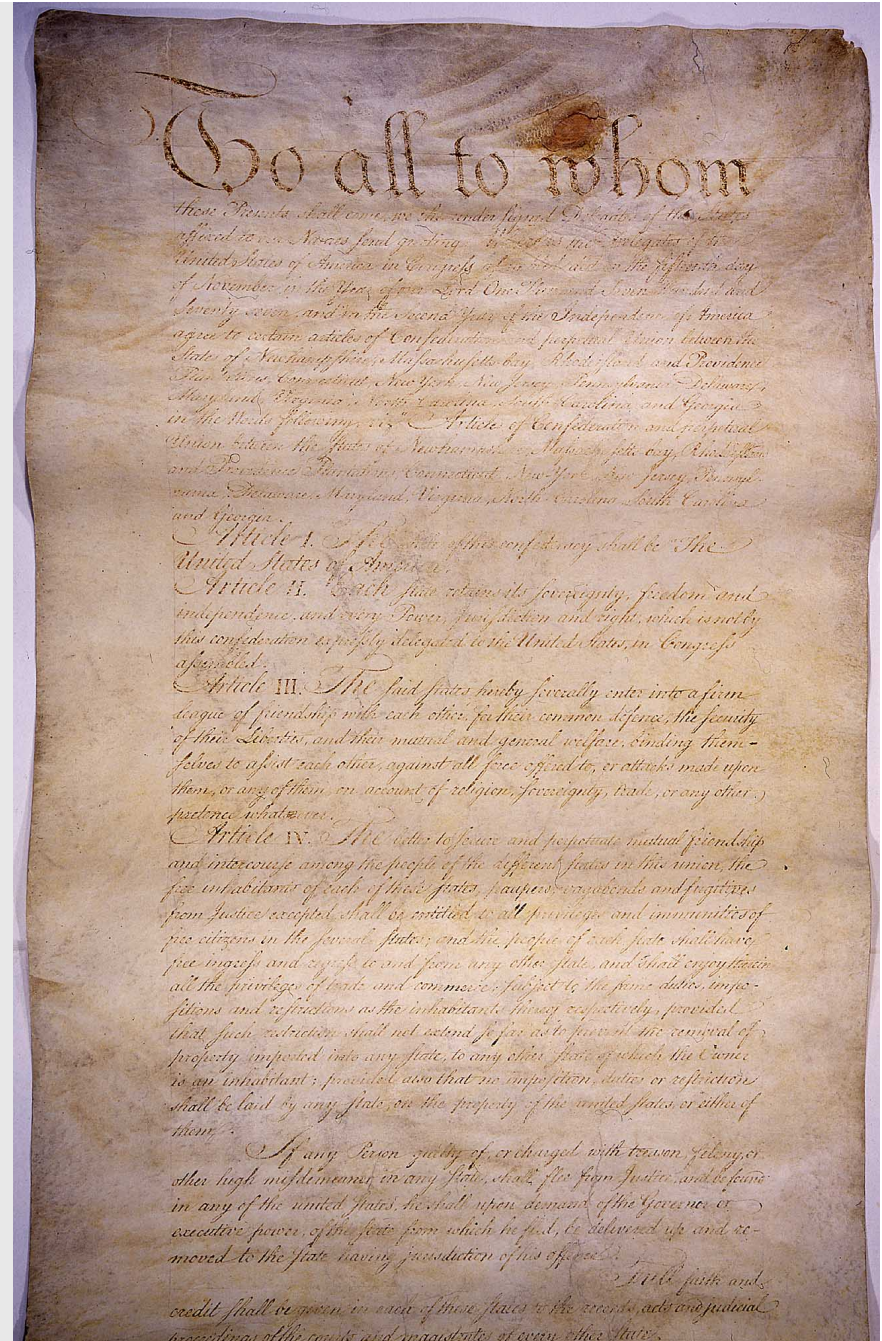 To all to whom
these Presents shall come, we the under signed Delegates of the States
affixed to our Names send greeting. Whereas the Delegates of the
United States of America in Congress assembled did on the fifteenth day
of November in the Year of our Lord One Thousand Seven Hundred and
Seventy seven, and in the Second Year of the Independence of America
agree to certain articles of Confederation and perpetual Union between the
States of Newhampshire, Massachusetts-bay, Rhodeisland and Providence
Plantations, Connecticut, New York, New Jersey, Pennsylvania, Delaware,
Maryland, Virginia, North-Carolina, South-Carolina, and Georgia
in the Words following, viz. "Articles of Confederation and perpetual
Union between the States of Newhampshire, Massachusetts-bay, Rhodeisland
and Providence Plantations, Connecticut, New-York, New-Jersey, Pennsyl-
vania, Delaware, Maryland, Virginia, North-Carolina, South-Carolina
and Georgia.
Article I. The Stile of this confederacy shall be "The
United States of America."
Article II. Each state retains its sovereignty, freedom and
independence, and every Power, Jurisdiction and right, which is not by
this confederation expressly delegated to the United States, in Congress
assembled.
Article III. The said states hereby severally enter into a firm
league of friendship with each other, for their common defence, the security
of their Liberties, and their mutual and general welfare, binding them-
selves to assist each other, against all force offered to, or attacks made upon
them, or any of them, on account of religion, sovereignty, trade, or any other
pretence whatever.
Article IV. The better to secure and perpetuate mutual friendship
and intercourse among the people of the different states in this union, the
free inhabitants of each of these states, paupers, vagabonds and fugitives
from Justice excepted, shall be entitled to all privileges and immunities of
free citizens in the several states; and the people of each state shall have
free ingress and regress to and from any other state, and shall enjoy therein
all the privileges of trade and commerce, subject to the same duties, impo-
sitions and restrictions as the inhabitants thereof respectively, provided
that such restriction shall not extend so far as to prevent the removal of
property imported into any state, to any other state of which the Owner
is an inhabitant; provided also that no imposition, duties or restriction
shall be laid by any state, on the property of the united states, or either of
them.
If any Person guilty of, or charged with treason, felony, or
other high misdemeanor in any state, shall flee from Justice, and be found
in any of the united states, he shall upon demand of the Governor or
executive power, of the state from which he fled, be delivered up and re-
moved to the state having jurisdiction of his offence.
Full faith and
credit shall be given in each of these states to the records, acts and judicial
proceedings of the courts and magistrates of every other State.